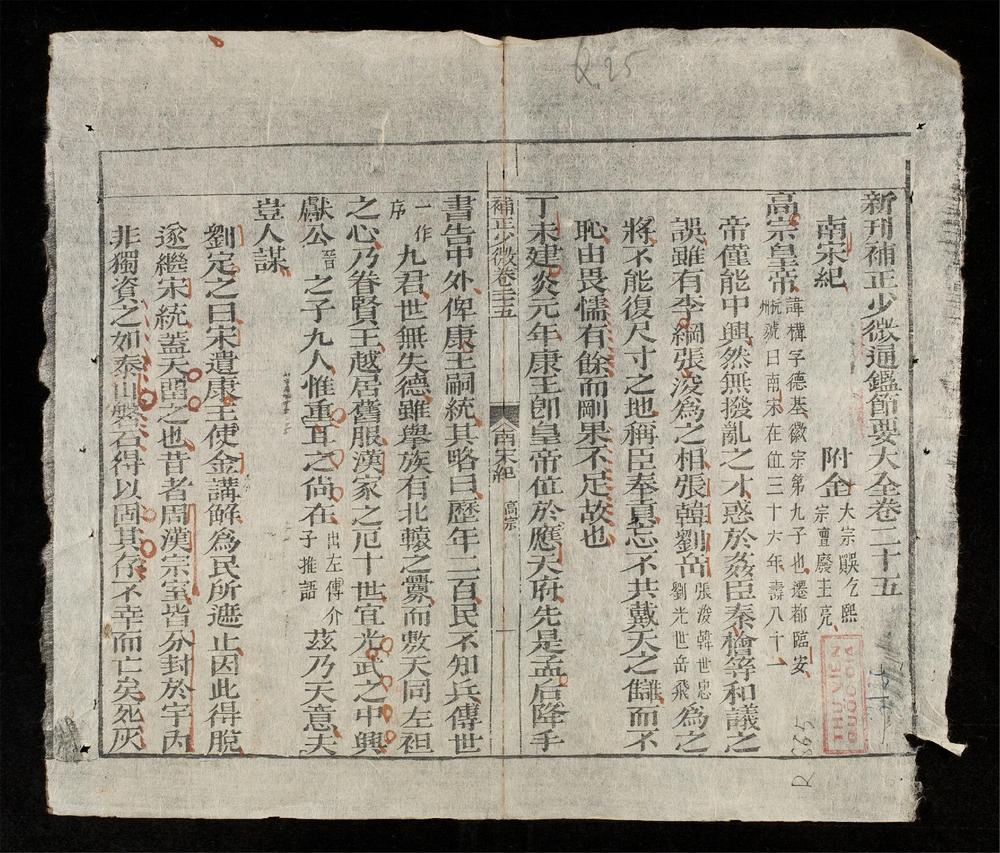 新刊補正少微通鑑節要大全卷二十五
南宋紀 附金 太宗晟乞熙宗亶廢主亮
高宗皇帝 諱構字德基徽宗第九子也遷都臨安杭州號曰南宋在位三十六年壽八十一
帝僅能中興然無撥亂之才惑於姦臣秦檜等和議之
誤雖有李綱張浚爲之相張韓劉岳 張浚韓世忠劉光世岳飛 爲之
將不能復尺寸之地稱臣奉貢忘不共戴天之讎而不
恥由畏懦有餘而剛果不足故也
丁未建炎元年康王卽皇帝位於應天府先是孟后降手
補正少微卷二十五 南宋紀 高宗 一
書告中外俾康王嗣統其略曰歷年二百民不知兵傳世
一作序 九君世無失德雖舉族有北轅之釁而敷天同左袒
之心乃眷賢王越居舊服漢家之厄十世宜光武之中興
獻公 晉 之子九人惟重耳之尚在 出左傳介子推語 茲乃天意夫
豈人謀
劉定之曰宋遣康王使金講解爲民所遮止因此得脫
遂繼宋統蓋天啓之也昔者周漢宗室皆分封於宇內
非獨資之如泰山磐石得以固其存不幸而亡矣死灰
Q 25
R 865
THU VIEN
QUOC GIA